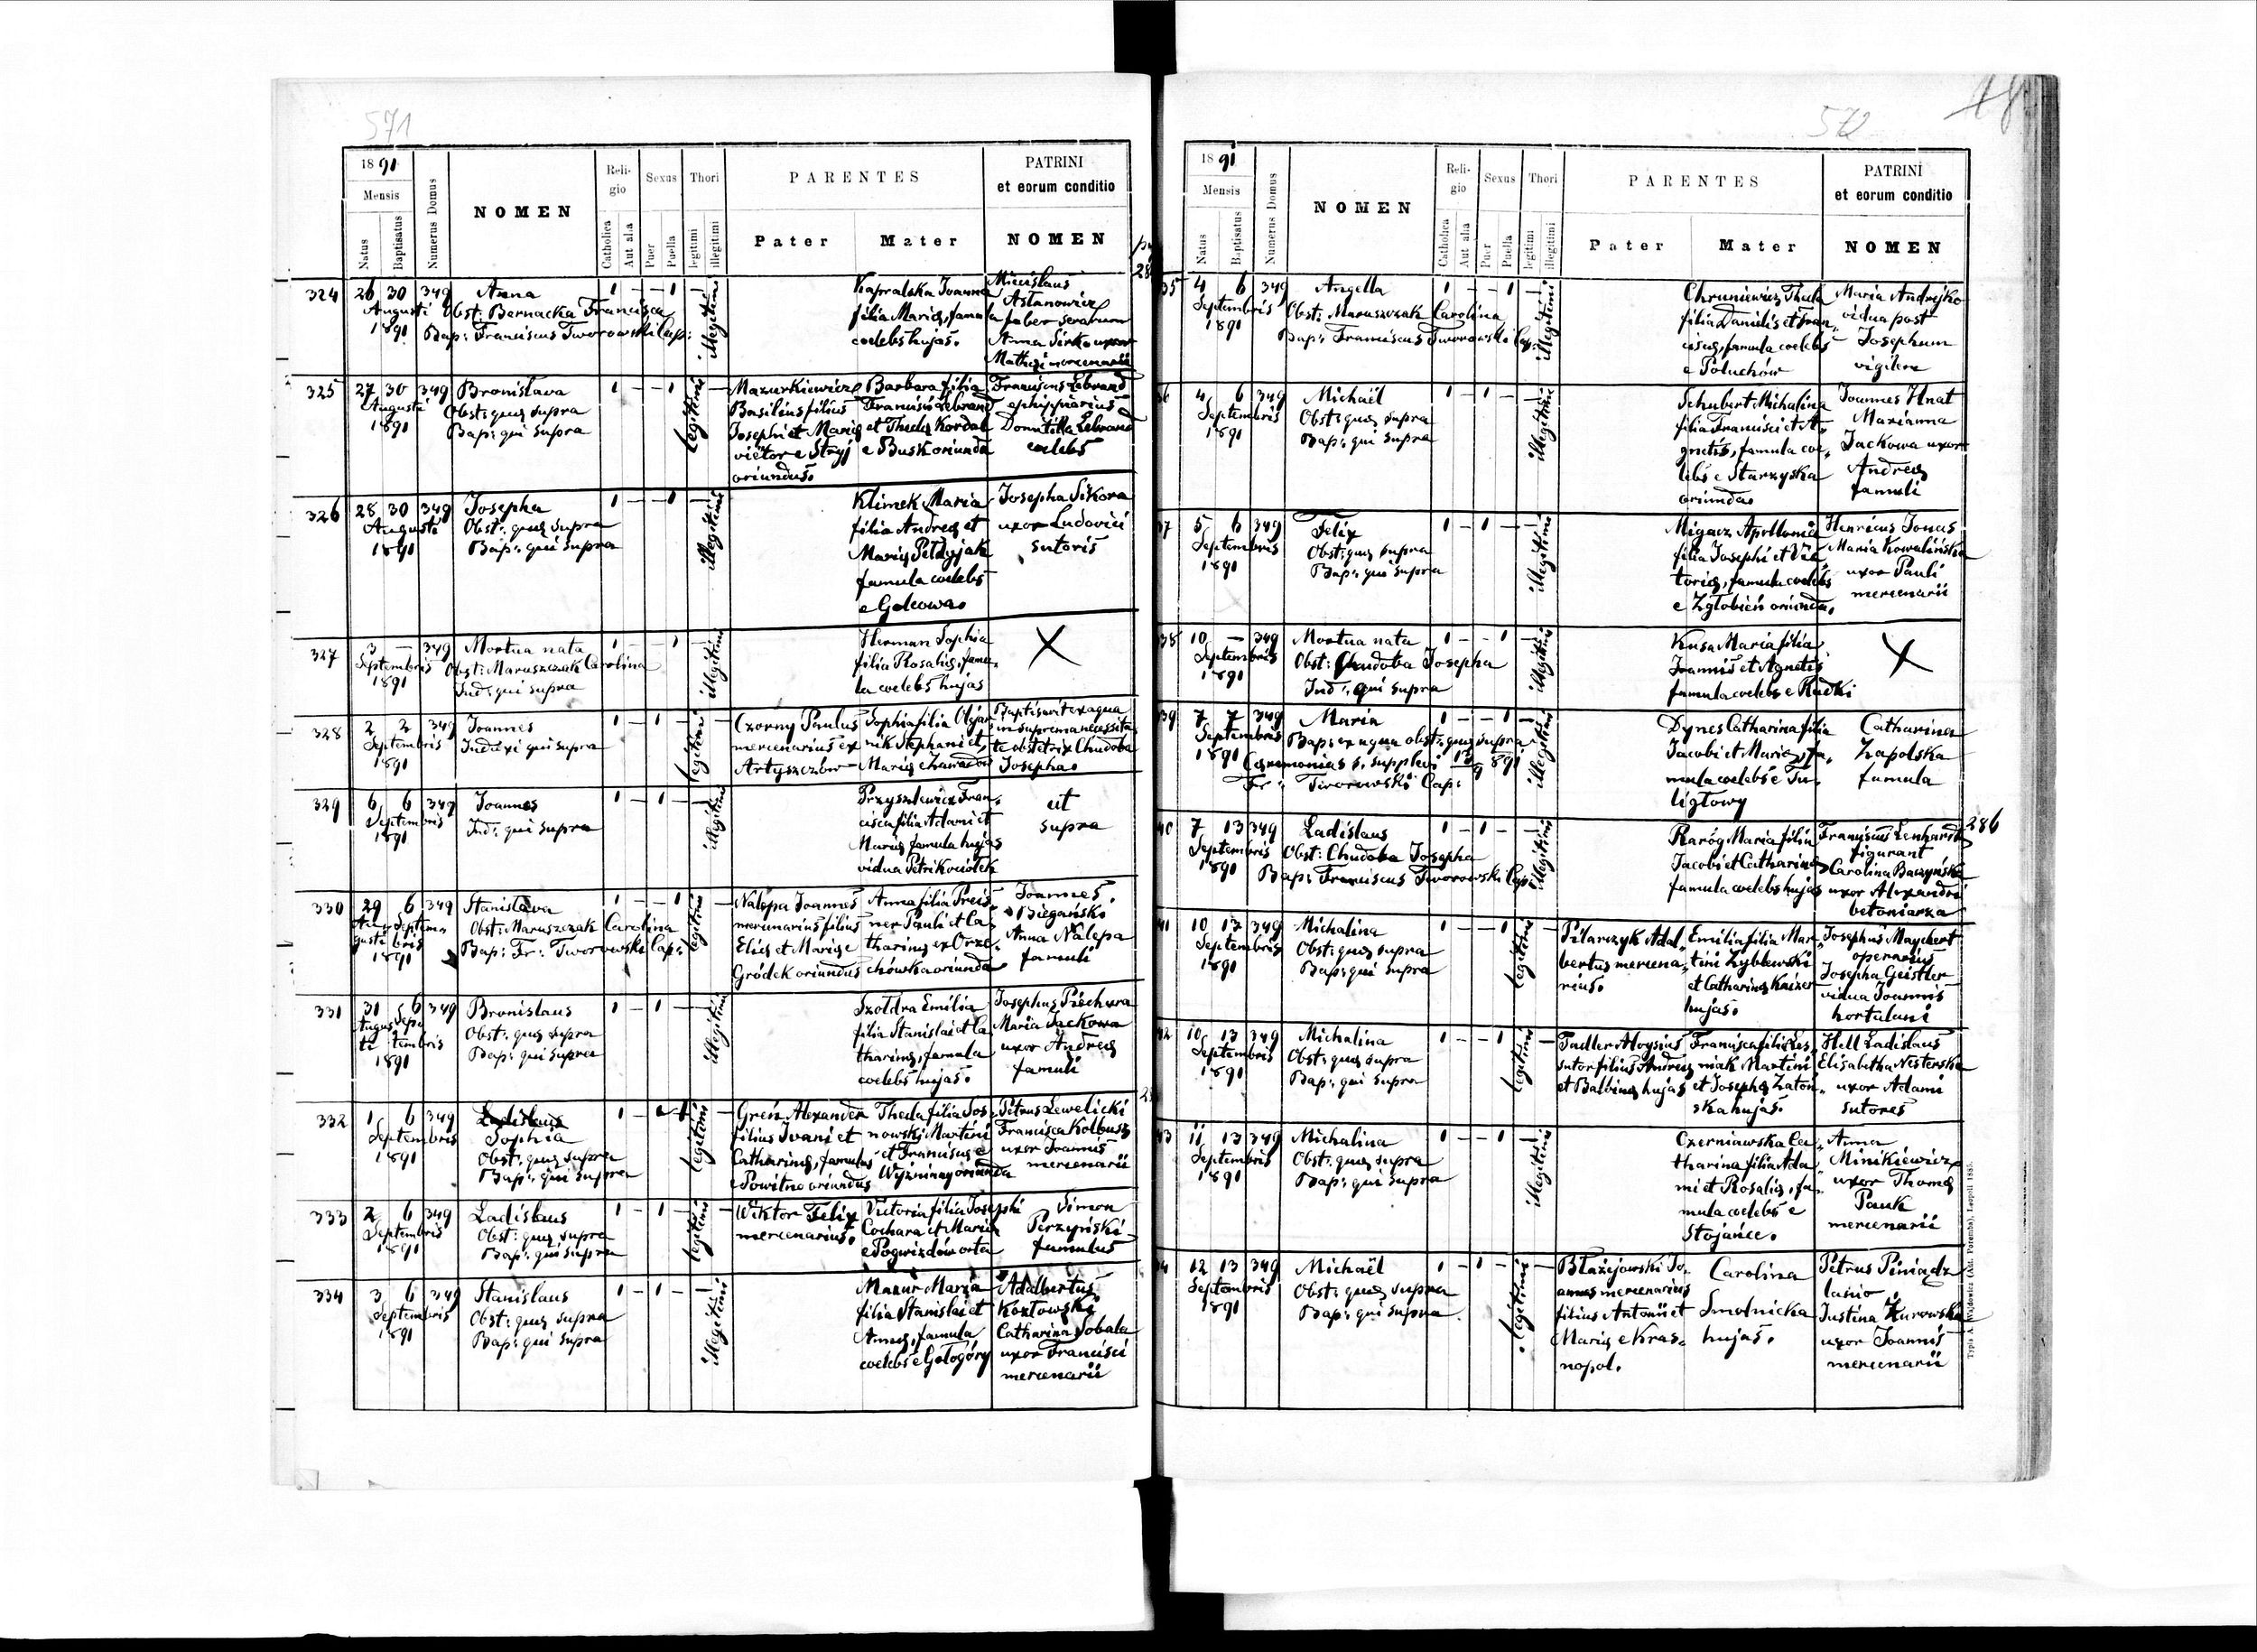 571
18 91
Mensis
Natus
Baptisatus
Numerus Domus
NOMEN
Reli-
gio
Catholica
Aut alia
Sexus
Puer
Puella
Thori
legitimi
illegitimi
PARENTES
Pater
Mater
PATRINI
et eorum conditio
NOMEN
324
26 30 349 Anna
Augusti Obst: Bernacka Francisca
1891 Bap: Franciscus Tworowski Cap:
1 — — 1 —
illegitimi
Kapralska Joanna
filia Mariæ, famula
coelebs hujas.
Mieczislaus
Astanowicz
faber serarum
Anna Sirko uxor
Mathæi mercenarii
325
27 30 349 Bronislava
Augusti Obst: quæ supra
1891 Bap: qui supra
1 — — 1 —
legitimi
Mazurkiewicz
Basilius filius
Josephi et Mariæ
viëtor e Stryj
oriundus.
Barbara filia
Francisci Lebrand
et Theclæ Kordal
e Busk oriunda
Franciscus Lebrand
ephippiarius
Domitilla Lebrand
coelebs
326
28 30 349 Josepha
Augusti Obst: quæ supra
1891 Bap: qui supra
1 — — 1 —
illegitimi
Klimek Maria
filia Andreæ et
Mariæ
famula coelebs
e Golcowa.
Josepha Sikora
uxor Ludovici
sutoris
327
3 — 349 Mortua nata
Septembris Obst: Maruszczak Carolina
1891 Ind: qui supra
1 1 —
illegitimi
Herman Sophia
filia Rosaliæ, famu-
la coelebs hujas
X
328
2 2 349 Joannes
Septembris Induxi qui supra
1891
1 — 1 — —
legitimi
Czorny Paulus
mercenarius ex
Artyszczów
Sophia filia Olijar-
nik Stephani et
Mariæ Zawadów
Baptisavit ex aqua
in suprema necessita-
te obstetrix Chudoba
Josepha.
329
6 6 349 Joannes
Septembris Ind: qui supra
1891
1 — 1 —
illegitimi
Przyszlewicz Fran-
cisca filia Adami et
Mariæ famula hujas
vidua Petri Kociolek
ut
supra
330
29 6 349 Stanislava
Au- Septem-
gusti bris
1891
Obst: Maruszczak Carolina
Bap: Fr: Tworowski Cap:
1 — — 1 —
legitimi
Nalepa Joannes
mercenarius filius
Eliæ et Mariæ e
Gródek oriundus
Anna filia Preis-
ner Pauli et Ca-
tharinæ ex Orze-
chówka oriunda
Joannes
Biegański
Anna Nalepa
famuli
331
31 6 349 Bronislaus
Augus- Sep-
ti tembris
1891
Obst: quæ supra
Bap: qui supra
1 — 1 — —
illegitimi
Szoldra Emilia
filia Stanislai et Ca-
tharinæ, famula
coelebs hujas.
Josephus Piechura
Maria Jackowa
uxor Andreæ
famuli
332
1 6 349 Ladislaus
Septembris Sophia
1891 Obst: quæ supra
Bap: qui supra
legitimi
Greń Alexander
filius Ivani et
Catharinæ, famulus
e Powitno oriundus
Thecla filia Sos-
nowski Martini
et Franciscæ e
Wyżniany oriunda
Petrus Lewelicki
Francisca Kolbusz
uxor Joannis
mercenarii
333
2 6 349 Ladislaus
Septembris Obst: quæ supra
1891 Bap: qui supra
1 — 1 — —
legitimi
Wiktor Felix
mercenarius.
Victoria filia Josephi
Cochara et Mariæ
e Pogwizdów orta
Simon
Pérzyński
famulus
334
3 6 349 Stanislaus
Septembris Obst: quæ supra
1891 Bap: qui supra
1 — 1 —
illegitimi
Mazur Maria
filia Stanislai et
Annæ, famula
coelebs e Gołogóry
Adalbertus
Kozłowski
Catharina Sobala
uxor Francisci
mercenarii
572
18
18 91
Mensis
Natus
Baptisatus
Numerus Domus
NOMEN
Reli-
gio
Catholica
Aut alia
Sexus
Puer
Puella
Thori
legitimi
illegitimi
PARENTES
Pater
Mater
PATRINI
et eorum conditio
NOMEN
35
4 6 349 Angella
Septembris Obst: Maruszczak Carolina
1891 Bap: Franciscus Tworowski Cap:
1 — — 1 —
illegitimi
Chruniewicz Thecla
filia Danielis et Fran-
ciscæ, famula coelebs
e Poluchów
Maria Andrejko
vidua post
Josephum
vigilem
36
4 6 349 Michaël
Septembris Obst: quæ supra
1891 Bap: qui supra
1 — 1 — —
illegitimi
Schubert Michalina
filia Francisci et A-
gnetis, famula coe-
lebs e Starzyska
oriunda.
Joannes Hnat
Marianna
Jackowa uxor
Andreæ
famuli
37
5 6 349 Felix
Septembris Obst: quæ supra
1891 Bap: qui supra
1 — 1 — —
illegitimi
Migacz Apollonia
filia Josephi et Vic-
toriæ, famula coelebs
e Zgłobień oriunda.
Henricus Jonas
Maria Kowalińska
uxor Pauli
mercenarii
38
10 — 349 Mortua nata
Septembris Obst: Chudoba Josepha
1891 Ind: qui supra
1 — — 1 —
illegitimi
Kusa Maria filia
Joannis et Agnetis
famula coelebs e Rudki
X
39
7 7 349 Maria
Septembris Bap: ex aqua obst: quæ supra
1891 Cæremonias s. supplevi 12/9 891
Fr: Tworowski Cap:
1 — — 1 —
illegitimi
Dynes Catharina filia
Jacobi et Mariæ, fa-
mula coelebs e Tu-
ligłowy
Catharina
Zapolska
famula
40
7 13 349 Ladislaus
Septembris Obst: Chudoba Josepha
1891 Bap: Franciscus Tworowski Cap:
1 — 1 —
illegitimi
Raróg Maria filia
Jacobi et Catharinæ
famula coelebs hujas
Franciscus Lenhardt
figurant
Carolina Baczyńska
uxor Alexandri
betoniarza
286
41
10 13 349 Michalina
Septembris Obst: quæ supra
1891 Bap: qui supra
1 — — 1 —
legitimi
Pilarczyk Adal-
bertus mercena-
rius.
Emilia filia Mar-
tini Zyblewski
et Catharinæ Kaizer
hujas.
Josephus Maychert
operarius
Josepha Geistler
vidua Joannis
hortulani
42
10 13 349 Michalina
Septembris Obst: quæ supra
1891 Bap: qui supra
1 — — 1 —
legitimi
Tadler Aloysius
sutor filius Andreæ
et Balbinæ hujas
Francisca filia Les-
niak Martini
et Josephæ Zaton-
ska hujas.
Hell Ladislaus
Elisabetha Nesterska
uxor Adami
sutores
43
11 13 349 Michalina
Septembris Obst: quæ supra
1891 Bap: qui supra
1 — — 1 —
illegitimi
Czerniawska Ca-
tharina filia Ada-
mi et Rosaliæ, fa-
mula coelebs e
Stojańce.
Anna
Minikiewicz
uxor Thomæ
Pauk
mercenarii
44
12 13 349 Michaël
Septembris Obst: quæ supra
1891 Bap: qui supra
1 — 1 — —
legitimi
Błażejowski Jo-
annes mercenarius
filius Antonii et
Mariæ e Kras-
nopol.
Carolina
Smolnicka
hujas.
Petrus Piniądz
lanio
Justina Żurowska
uxor Joannis
mercenarii
Typis A. Wajdowicz (Ant. Poremba), Leopoli 1885.